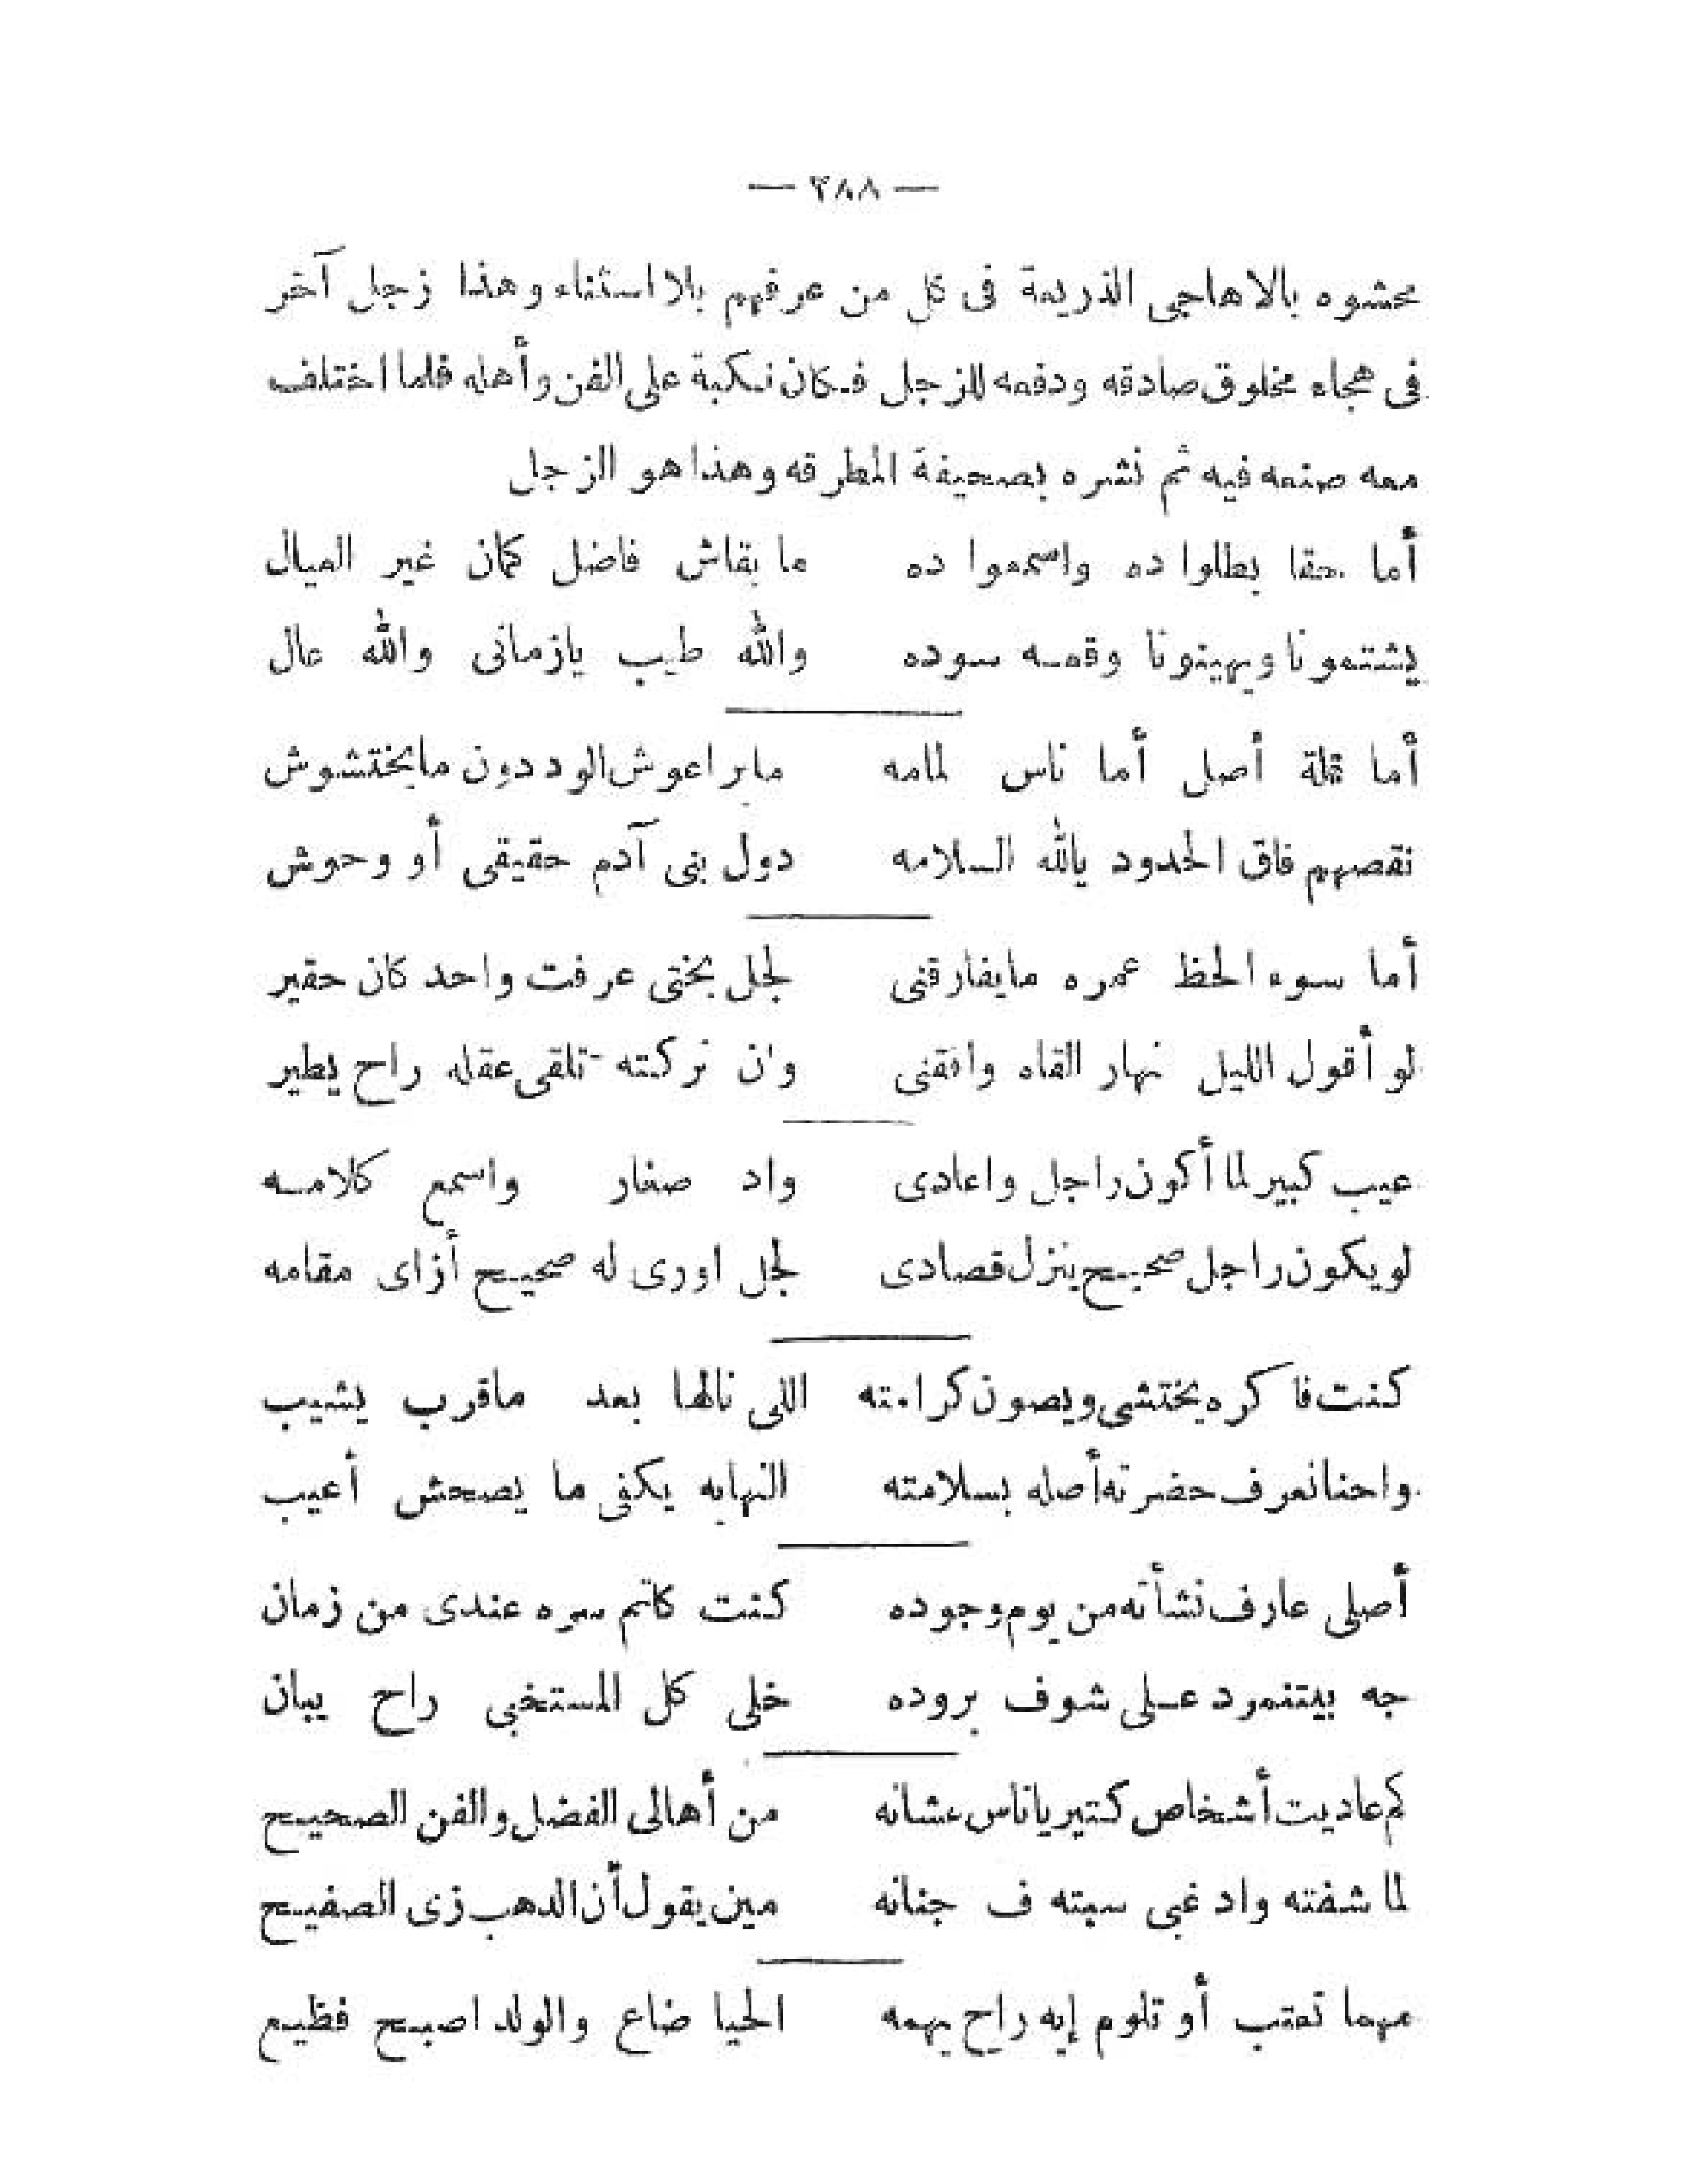 — ٢٨٨ —
محشوه بالاهاجى الذريعة فى كل من عرفهم بلا استثناء وهذا زجل آخر
فى هجاء مخلوق صادقه ودفعه للزجل فكان نكبة على الفن وأهله فلما اختلف
معه صنعه فيه ثم نشره بصحيفة المطرقه وهذا هو الزجل
أما حقا بطلوا ده واسمعوا ده ما بقاش فاضل كمان غير العيال
يشتمونا ويهينونا وقعه سوده والله طيب يازمانى والله عال
أما قلة أصل أما ناس لمامه مايراعوش الود دون مايختشوش
نقصهم فاق الحدود يالله السلامه دول بنى آدم حقيقى أو وحوش
أما سوء الحظ عمره مايفارقنى لجل بختى عرفت واحد كان حقير
لو أقول الليل نهار القاه وافقنى وان تركته تلقى عقله راح يطير
عيب كبير لما أكون راجل واعادى واد صغار واسمع كلامه
لو يكون راجل صحيح ينزل قصادى لجل اورى له صحيح أزاى مقامه
كنت فاكره يختشى ويصون كرامته اللى نالها بعد ماقرب يشيب
واحنا نعرف حضرته أصله بسلامته النهايه يكفى ما يصحش أعيب
أصلى عارف نشأته من يوم وجوده كنت كاتم سره عندى من زمان
جه بيتنمرد على شوف بروده خلى كل المستخبى راح يبان
كم عاديت أشخاص كتير ياناس عشانه من أهالى الفضل والفن الصحيح
لما شفته واد غبى سبته ف جنانه مين يقول أن الدهب زى الصفيح
مهما تعتب أو تلوم إيه راح يهمه الحيا ضاع والولد اصبح فظيع